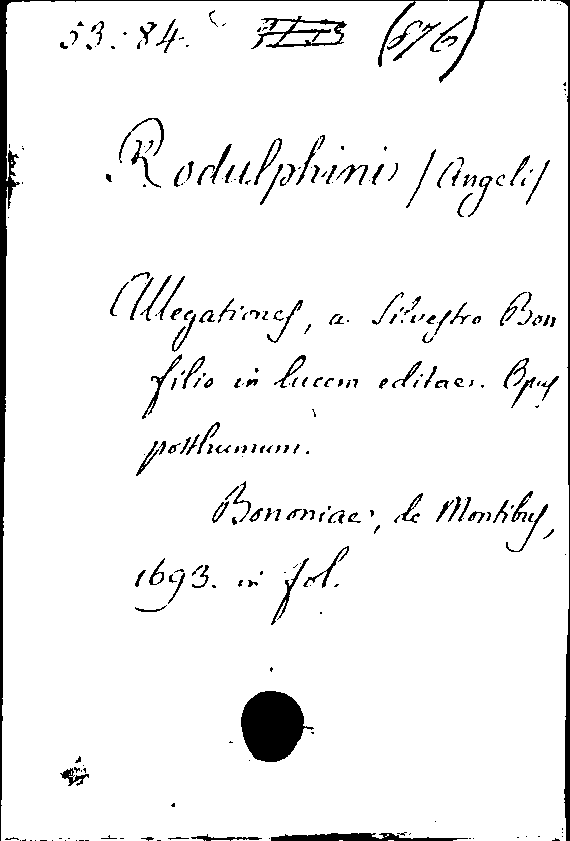 53.84. (876)
Rodulphinis /Angeli/
Allegationes, a Silvestro Bon
filio in lucem editae. Opus
posthumum.
Bononiae, de Montibus,
1693. in fol.